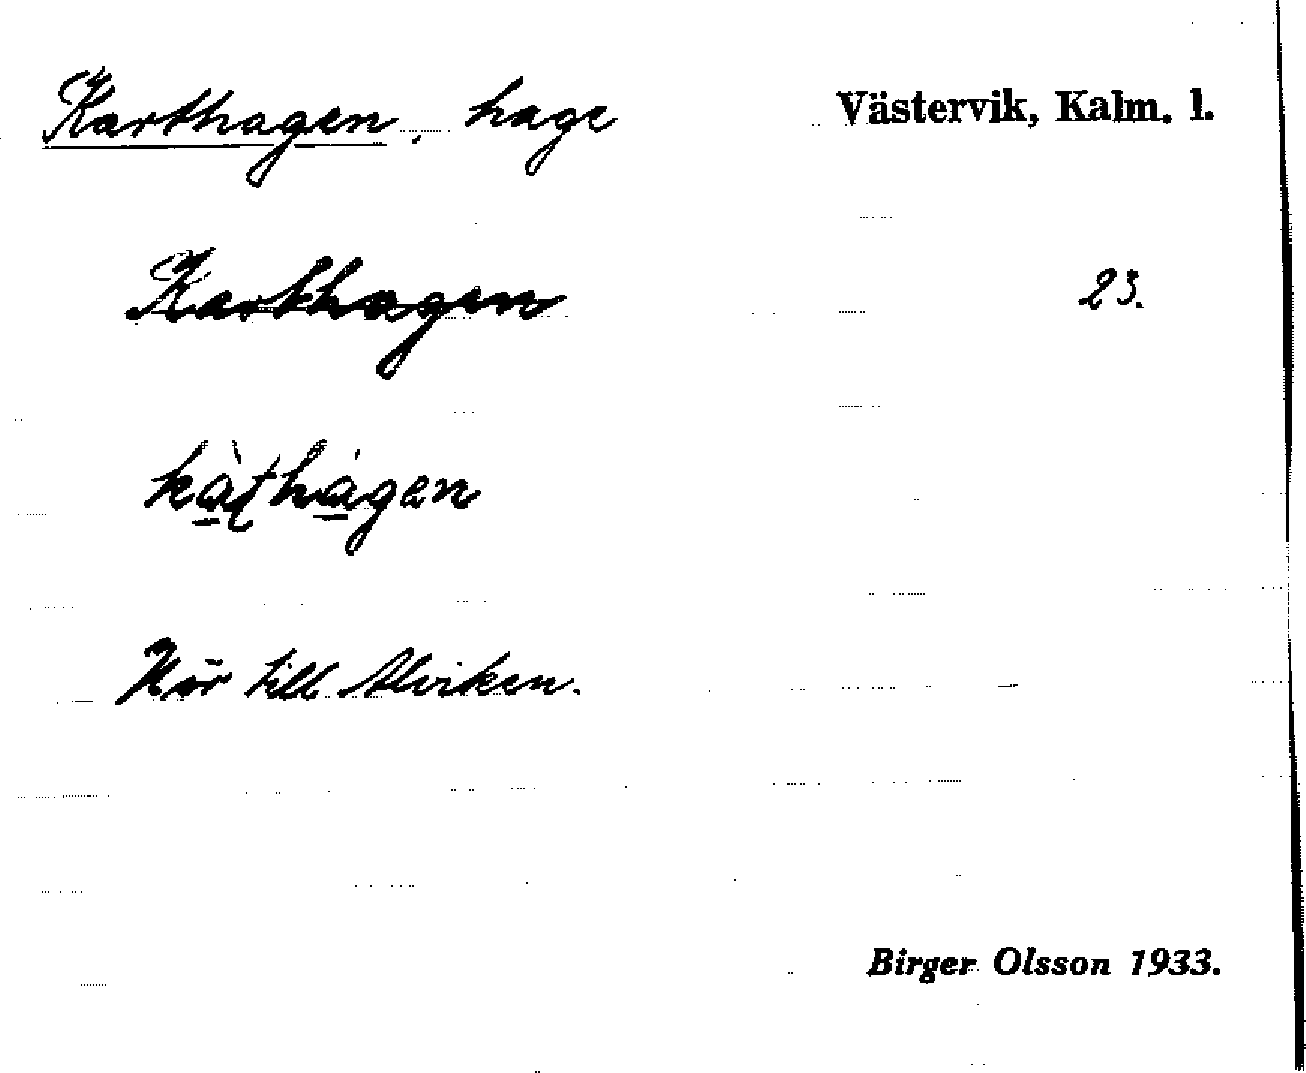 Karthagen, hage
Västervik, Kalm. l.
Karthagen
23.
kàṭhágen
Hör till Alviken.
Birger Olsson 1933.